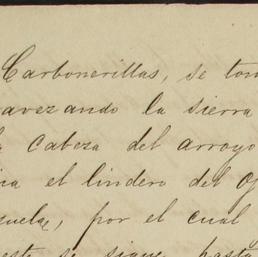 Carbonerillas, se tom
avezando la sierra
la Cabeza del arroyo
cia el lindero del O
zuela, por el cual
este se sigue hasta